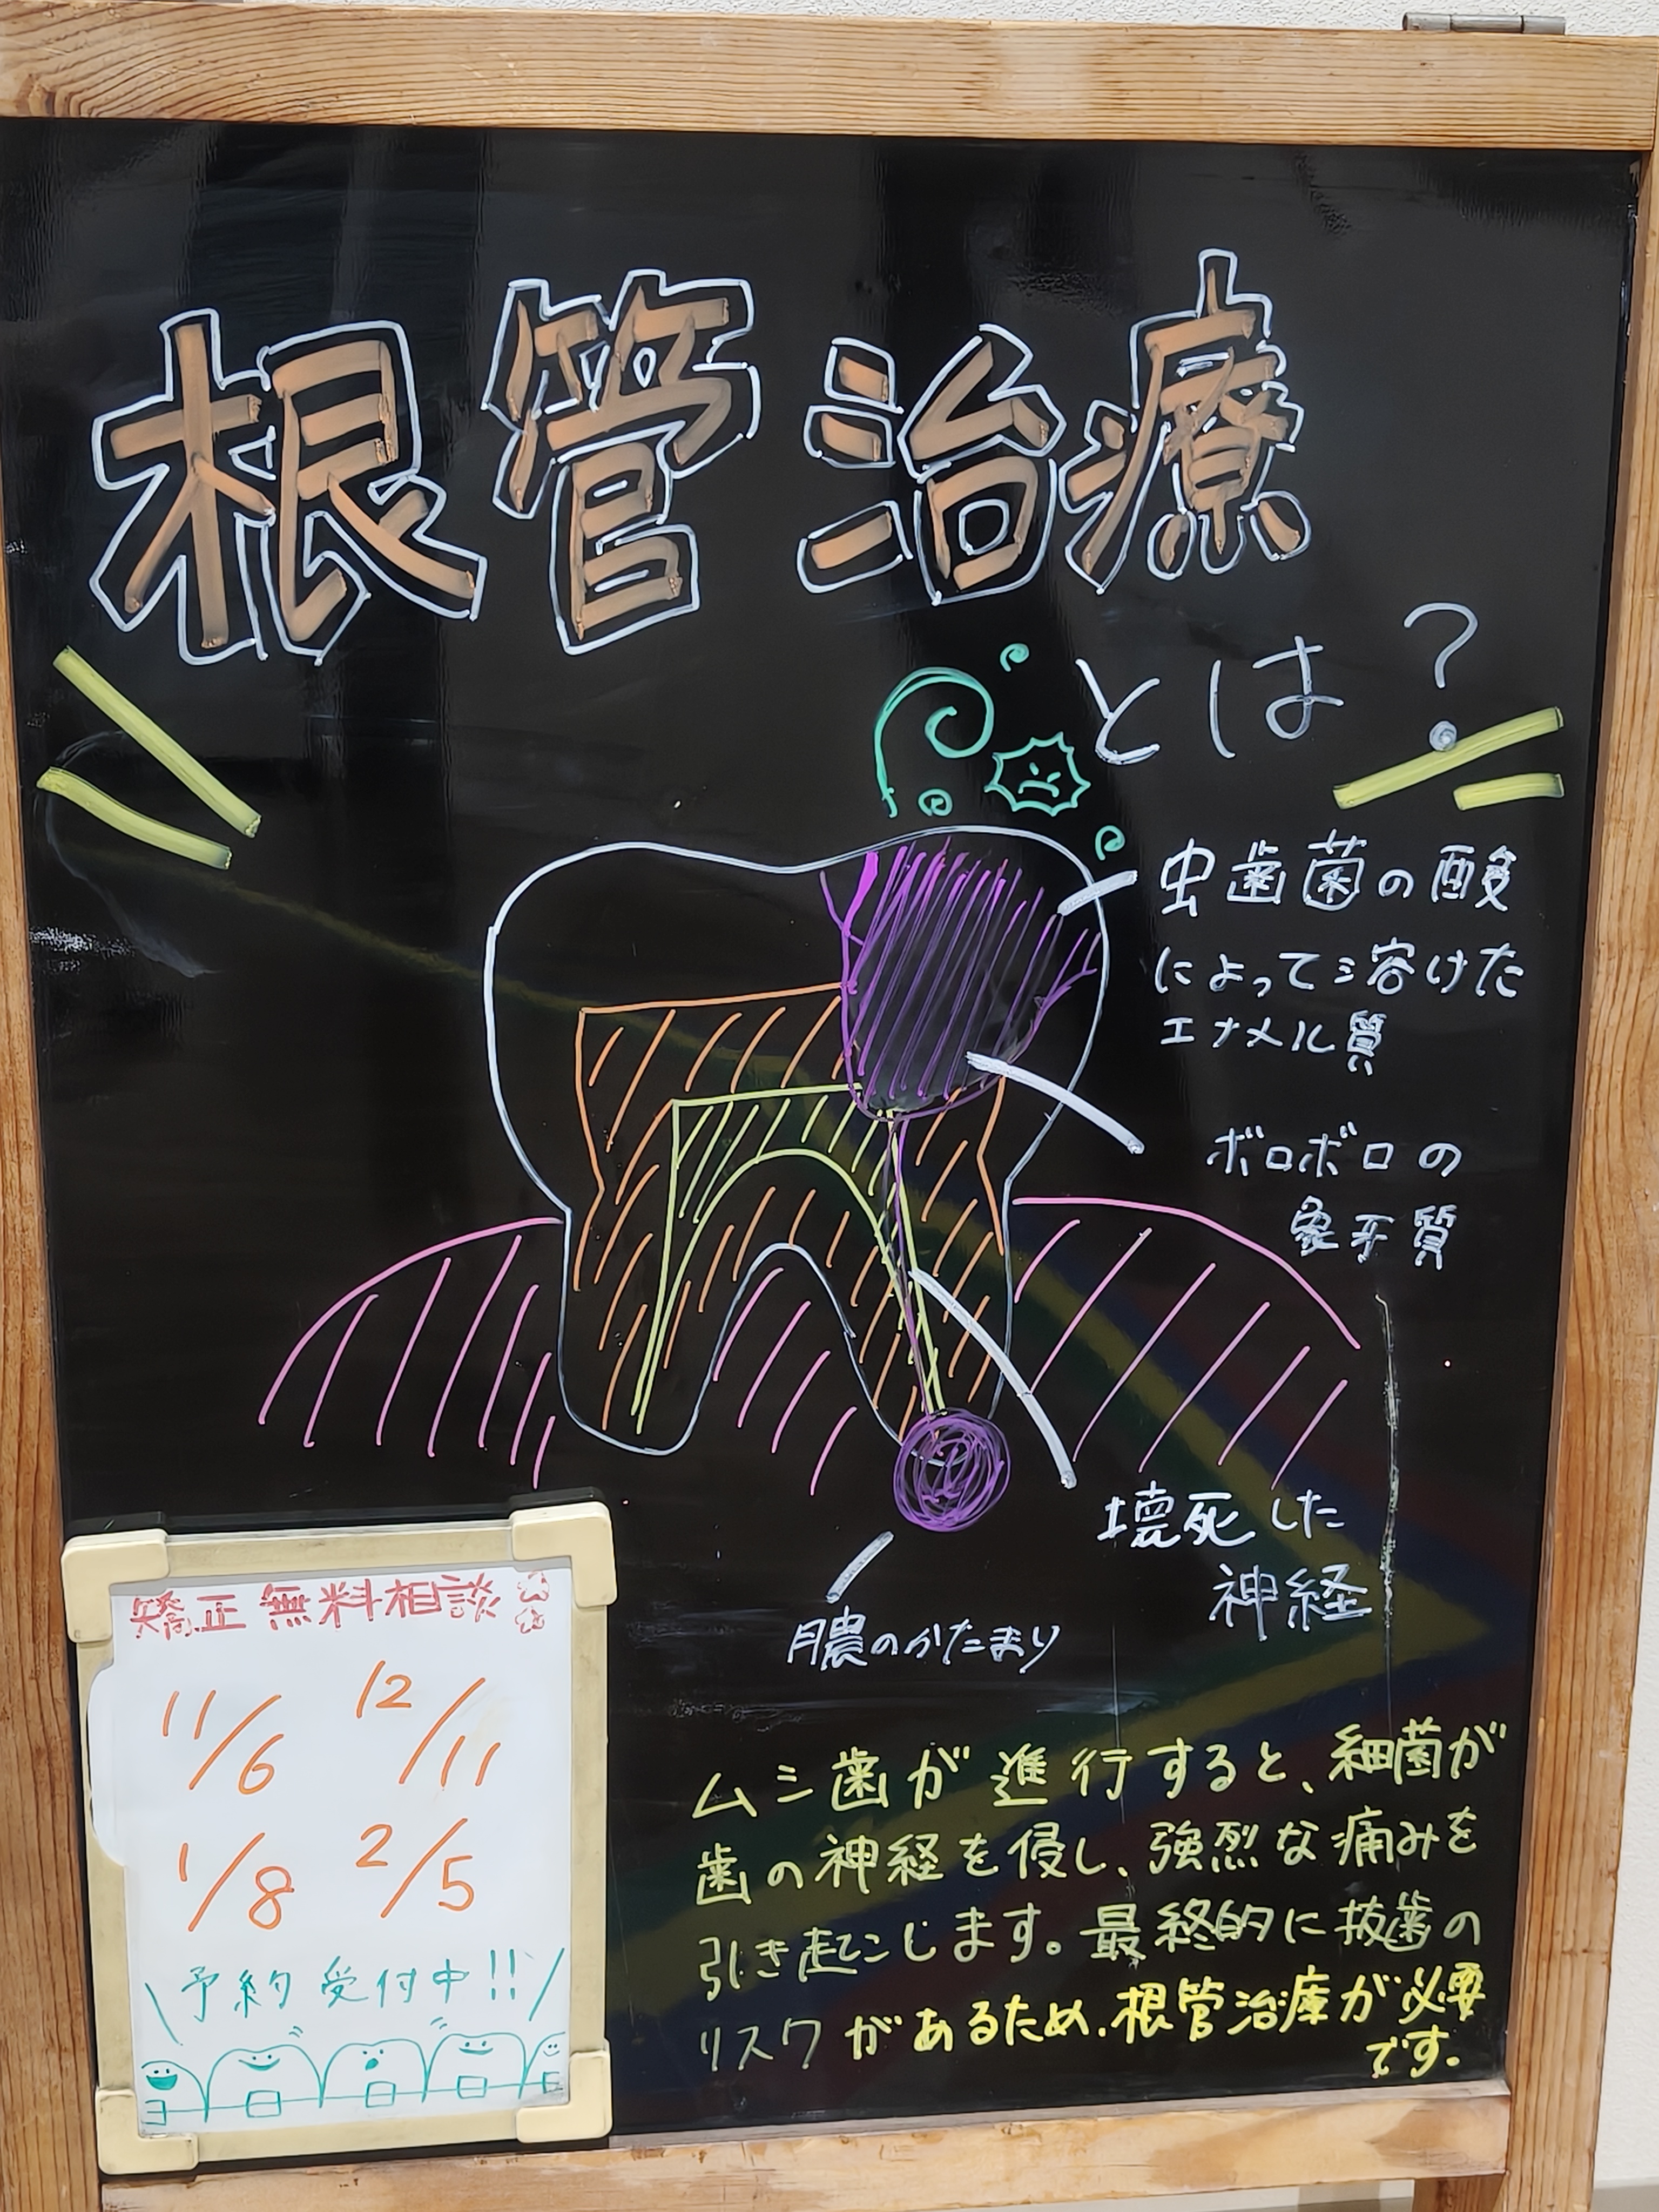 根管治療
とは?
虫歯菌の酸
によって溶けた
エナメル質
ボロボロの
象牙質
壊死した
神経
膿のかたまり
ムシ歯が進行すると、細菌が
歯の神経を侵し、強烈な痛みを
引き起こします。最終的に抜歯の
リスクがあるため、根管治療が必要
です。
矯正無料相談
11/6 12/11
1/8 2/5
予約受付中!!